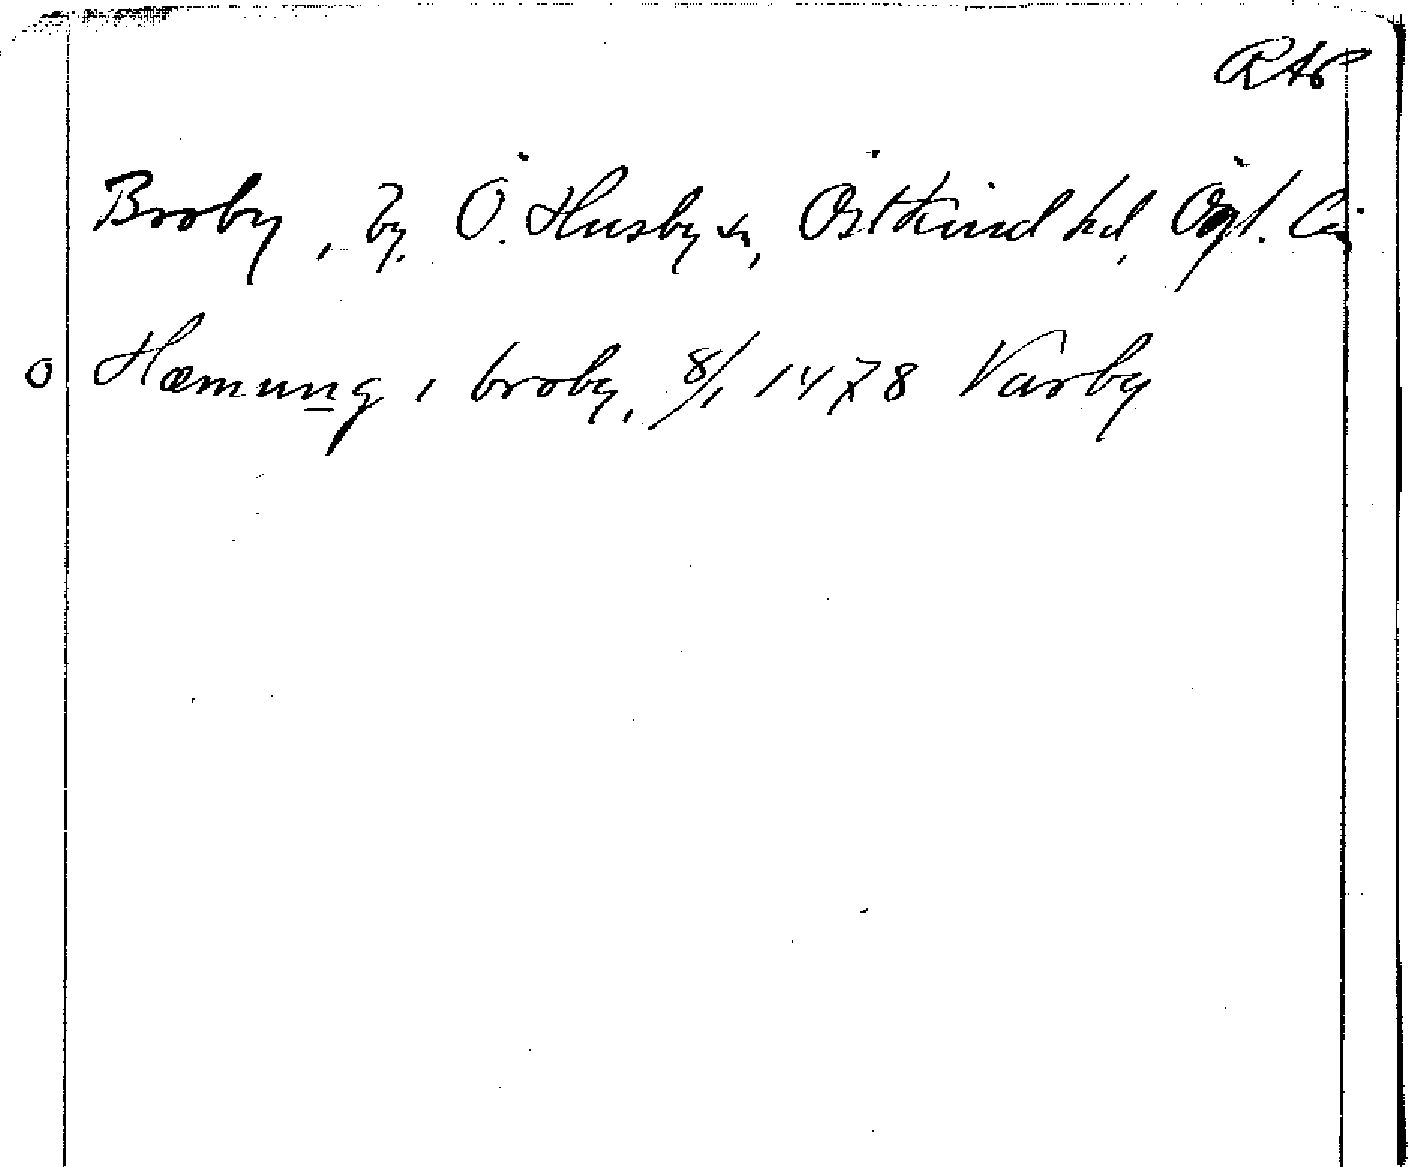 RAP
Broby, by, Ö. Husby sn, Östkind hd, Ögl. län
o Hæmung i broby, 8/1 1478 Varby